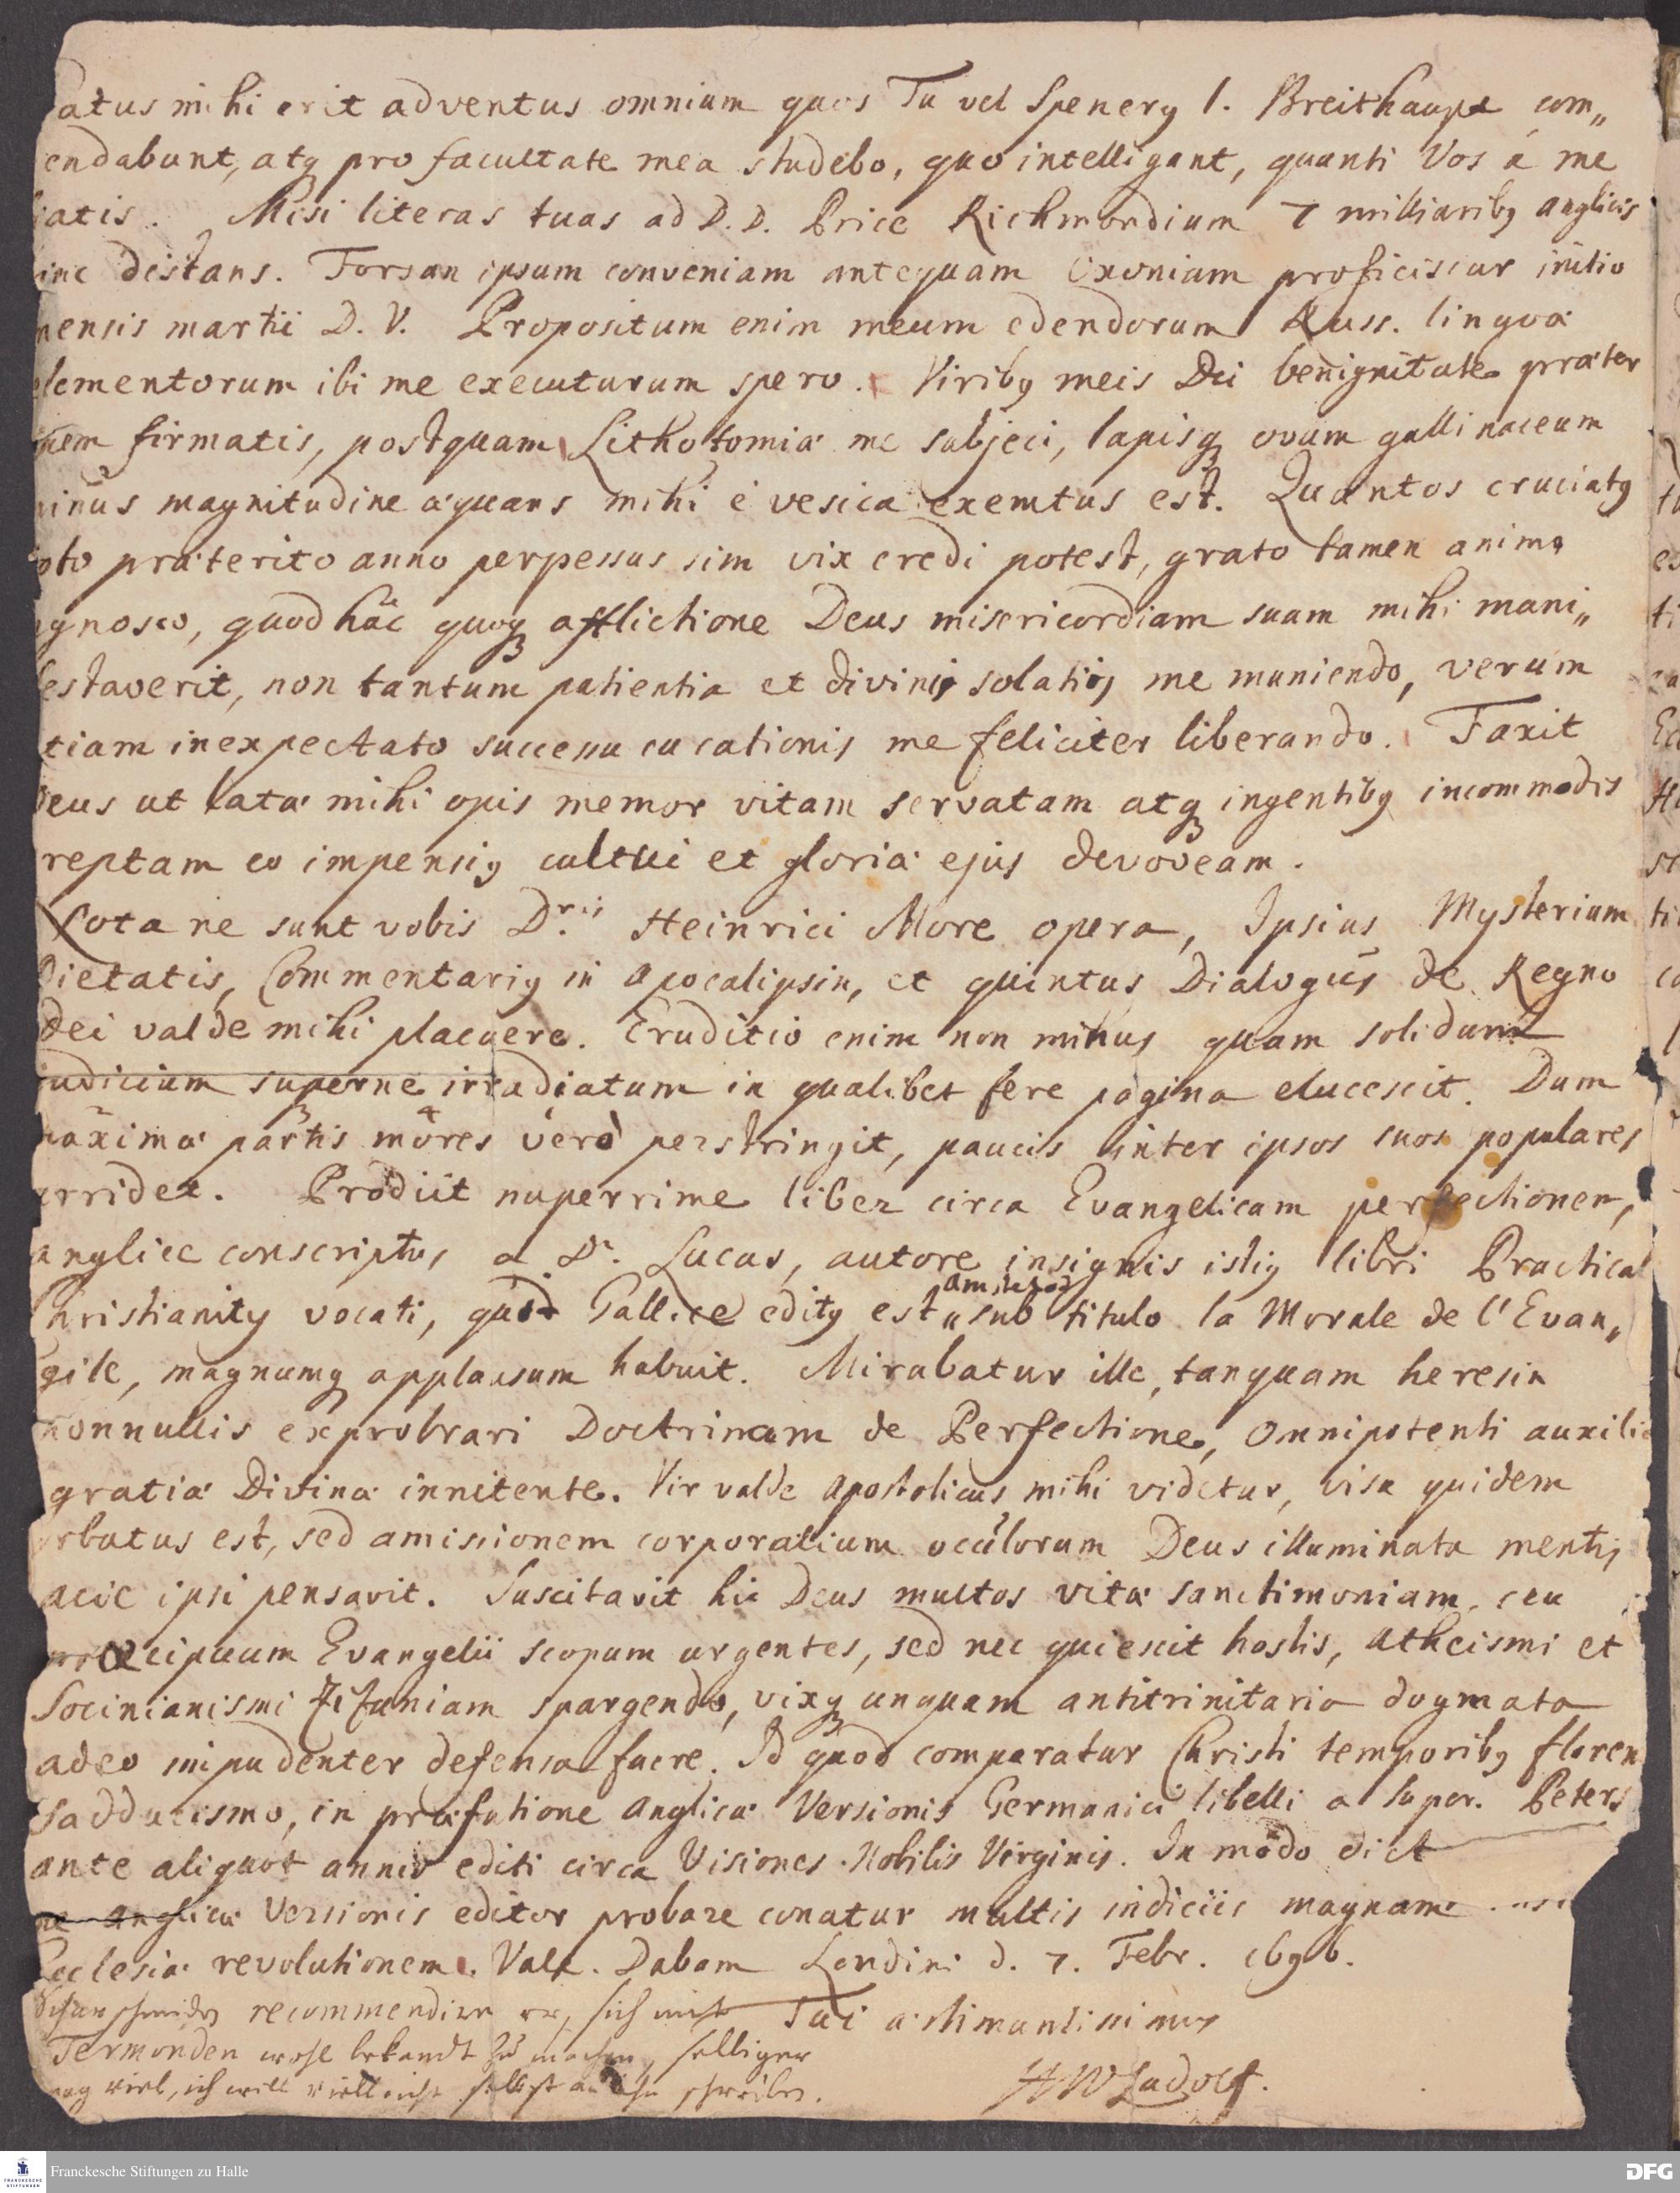 atus mihi erit adventus omnium quos Tu vel Spenerꝯ l. Breithaupt com„
endabunt, atq pro facultate mea studebo, quo intelligant, quanti Vos á me
iatis. Misi literas tuas ad D. D. Price Richmondium 7 milliaribꝯ anglicis
inc distans. Forsan ipsum conveniam antequam Oxoniam proficiscar initio
mensis martii D. V. Propositum enim meum edendorum Russ. linguæ
elementorum ibi me executurum spero. Viribꝯ meis Dei benignitate præter
firmatis, postquam Lithotomiæ me subjeci, lapisq ovum gallinaceum
minus magnitudine æquans mihi é vesica exemtus est. Quantos cruciatꝯ
oto præterito anno perpessus sim vix credi potest, grato tamen animo
gnosco, quod hâc quoq afflictione Deus misericordiam suam mihi mani„
estaverit, non tantum patientia et divinis solatiis me muniendo, verum
tiam inexpectato successu curationis me feliciter liberando. Faxit
Deus ut latæ mihi opis memor vitam servatam atq ingentibꝯ incommodis
reptam eo impensiꝯ cultui et gloriæ ejus devoveam.
Nota ne sunt vobis Dris Heinrici More opera, Ipsius Mysterium
Pietatis, Commentariꝯ in apocalipsin, et quintus Dialogus de Regno
Dei valde mihi placuere. Eruditio enim non minus quam solidum
judicium superne irradiatum in qualibet fere pagina elucescit. Dum
maximæ partis mores vero perstringit, paucis inter ipsos suos populares
arridet. Prodiit nuperrime liber circa Evangelicam perfectionem,
anglice conscriptus a Dr. Lucas, autore insignis istiꝯ libri Practical
Christianity vocati, qui Gallice editꝯ est „ sub titulo la Morale de l'Evan„
Amstelod
gile, magnumq applausum habuit. Mirabatur ille, tanquam heresin
nonnullis exprobrari Doctrinam de Perfectione, Omnipotenti auxilio
gratiæ Divinæ innitente. Vir valde apostolicus mihi videtur, visu quidem
orbatus est, sed amissionem corporalium oculorum Deus illuminata mentis
acie ipsi pensavit. Suscitavit hic Deus multos vitæ sanctimoniam, ceu
præcipuum Evangelii scopum urgentes, sed nec quiescit hostis, Atheismi et
Socinianismi Zizaniam spargendo, vixq unquam antitrinitaria dogmata
adeo impudenter defensa fuere. Id quod comparatur Christi temporibꝯ floren
Sadducismo, in præfatione Anglicæ Versionis Germanici libelli a Super. Peters
ante aliquot annis editi circa Visiones Nobilis Virginis. In modo dict
anglicæ Versionis editor probare conatur multis indiciis magnam
Ecclesiæ revolutionem. Vale. Dabam Londini d. 7. Febr. 1696.
recommendire er, sich mit Tui æstimantissimus
Termonden wohl bekandt zu machen, selliger
mag viel, ich will vielleicht selbst an ihn schreiben.
HWLudolf.
Franckesche Stiftungen zu Halle
FRANCKESCHE STIFTUNGEN
DFG